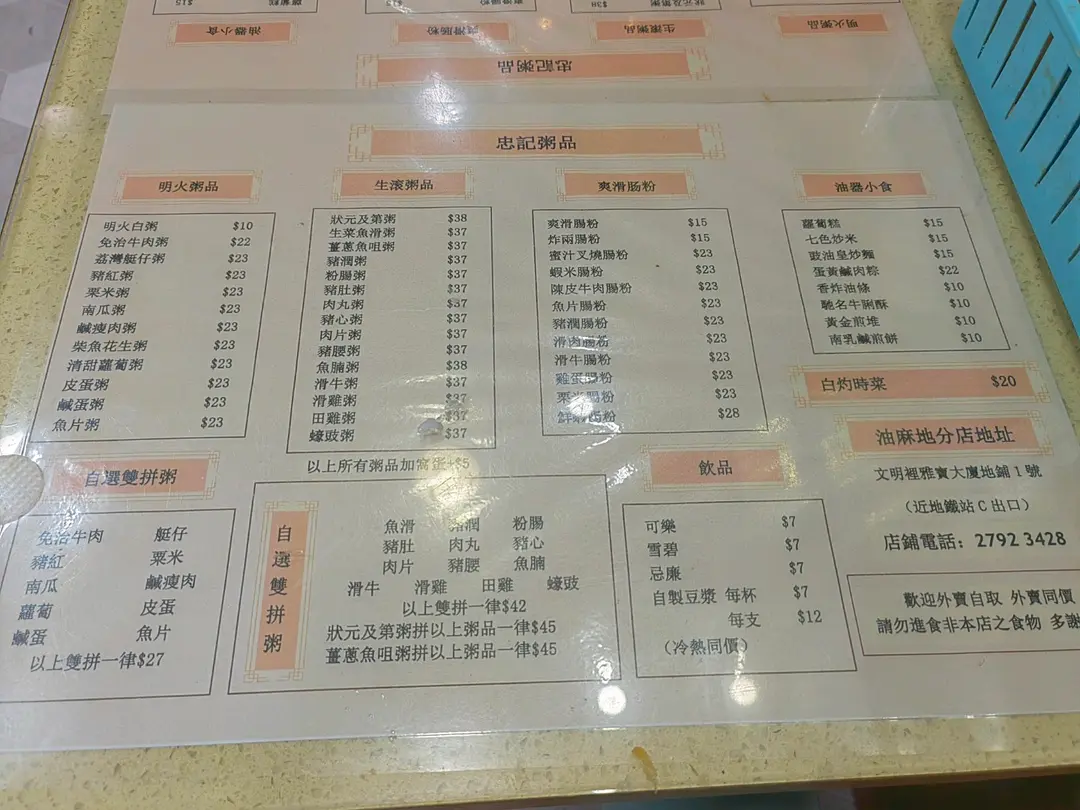 忠記粥品
明火粥品
明火白粥 $10
免治牛肉粥 $22
荔灣艇仔粥 $23
豬紅粥 $23
粟米粥 $23
南瓜粥 $23
鹹瘦肉粥 $23
柴魚花生粥 $23
清甜蘿蔔粥 $23
皮蛋粥 $23
鹹蛋粥 $23
魚片粥 $23
生滚粥品
狀元及第粥 $38
生菜魚滑粥 $37
薑蔥魚咀粥 $37
豬潤粥 $37
粉腸粥 $37
豬肚粥 $37
肉丸粥 $37
豬心粥 $37
肉片粥 $37
豬腰粥 $37
魚腩粥 $38
滑牛粥 $37
滑雞粥 $37
田雞粥 $37
蠔豉粥 $37
以上所有粥品加窩蛋+$5
爽滑肠粉
爽滑腸粉 $15
炸兩腸粉 $15
蜜汁叉燒腸粉 $23
蝦米腸粉 $23
陳皮牛肉腸粉 $23
魚片腸粉 $23
豬潤腸粉 $23
滑肉腸粉 $23
滑牛腸粉 $23
雞蛋腸粉 $23
粟米腸粉 $23
鮮 腸粉 $28
油器小食
蘿蔔糕 $15
七色炒米 $15
豉油皇炒麵 $15
蛋黃鹹肉粽 $22
香炸油條 $10
馳名牛脷酥 $10
黃金煎堆 $10
南乳鹹煎餅 $10
白灼時菜 $20
油麻地分店地址
文明裡雅寶大廈地鋪1號
(近地鐵站C出口)
店鋪電話：2792 3428
歡迎外賣自取 外賣同價
請勿進食非本店之食物 多謝
自選雙拼粥
免治牛肉 艇仔
豬紅 粟米
南瓜 鹹瘦肉
蘿蔔 皮蛋
鹹蛋 魚片
以上雙拼一律$27
自選雙拼粥
魚滑 豬潤 粉腸
豬肚 肉丸 豬心
肉片 豬腰 魚腩
滑牛 滑雞 田雞 蠔豉
以上雙拼一律$42
狀元及第粥拼以上粥品一律$45
薑蔥魚咀粥拼以上粥品一律$45
飲品
可樂 $7
雪碧 $7
忌廉 $7
自製豆漿 每杯 $7
每支 $12
(冷熱同價)
忠記粥品
明火粥品
生滚粥品
爽滑肠粉
油器小食
狀元及第粥 $38
爽滑腸粉 $15
蘿蔔糕 $15